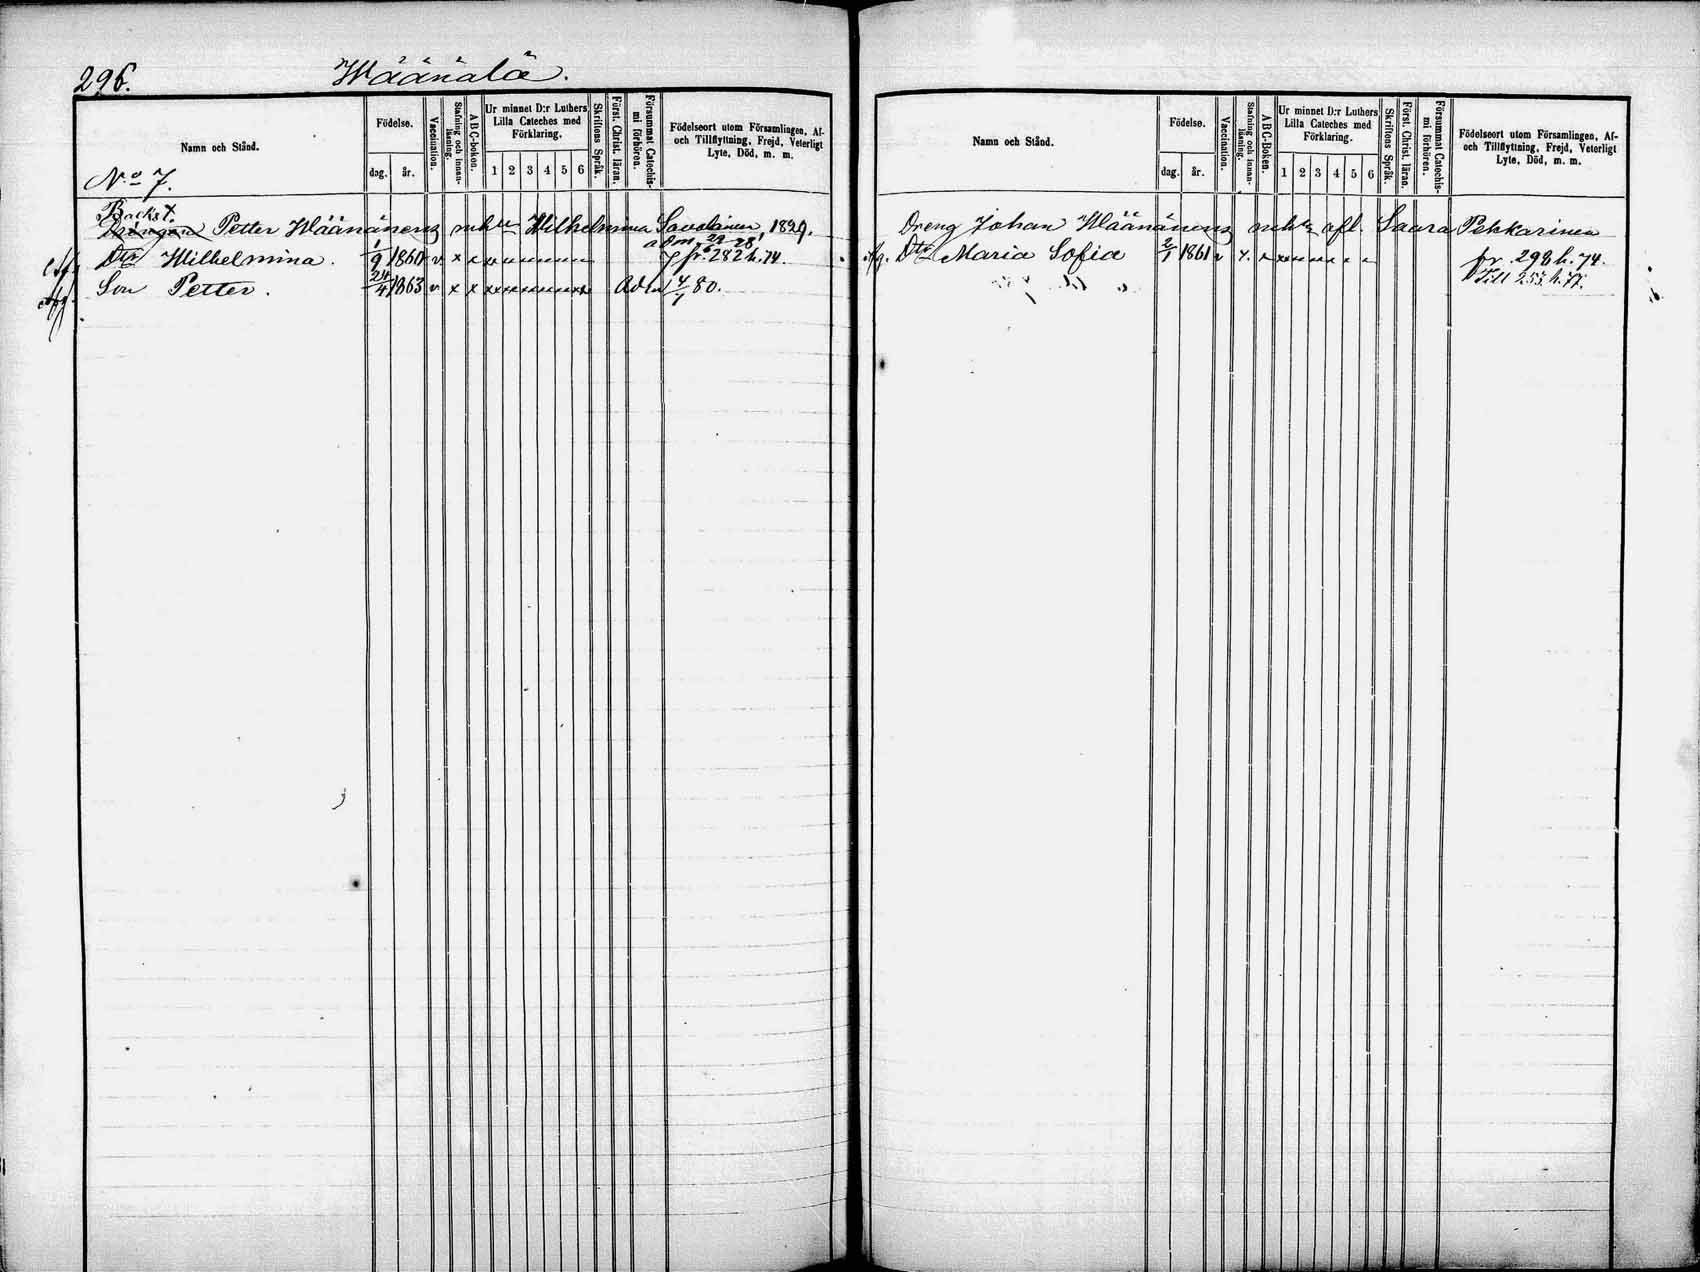 296. Wäänälä.
Namn och Stånd.
Födelse.
dag. år.
Vaccination.
Stafning och innanläsning.
ABC-boken.
Ur minnet D:r Luthers Lilla Cateches med Förklaring.
1 2 3 4 5 6
Skriftens Språk.
Först. Christ. läran.
Försummat Catechismi förhören.
Födelseort utom Församlingen, Af- och Tillflyttning, Frejd, Veterligt Lyte, Död, m. m.
No 7.
Backst.
Petter Wäänänens Wilhelmina Savolainen 1829.
Dtr Wilhelmina. 1/9 1860 v x x fr. 282 h. 74.
Son Petter. 24/4 1863 v x x Adm 4/7 80.
Namn och Stånd.
Födelse.
dag. år.
Vaccination.
Stafning och innanläsning.
ABC-Boken.
Ur minnet D:r Luthers Lilla Cateches med Förklaring.
1 2 3 4 5 6
Skriftens Språk.
Först. Christ. läran.
Försummat Catechismi förhören.
Födelseort utom Församlingen, Af- och Tillflyttning, Frejd, Veterligt Lyte, Död, m. m.
Dreng Johan Wäänänens afl. Saara Pekkarinen
Dtr Maria Sofia 2/1 1861 v x fr. 298 h. 74.
Till 255 h. 77.